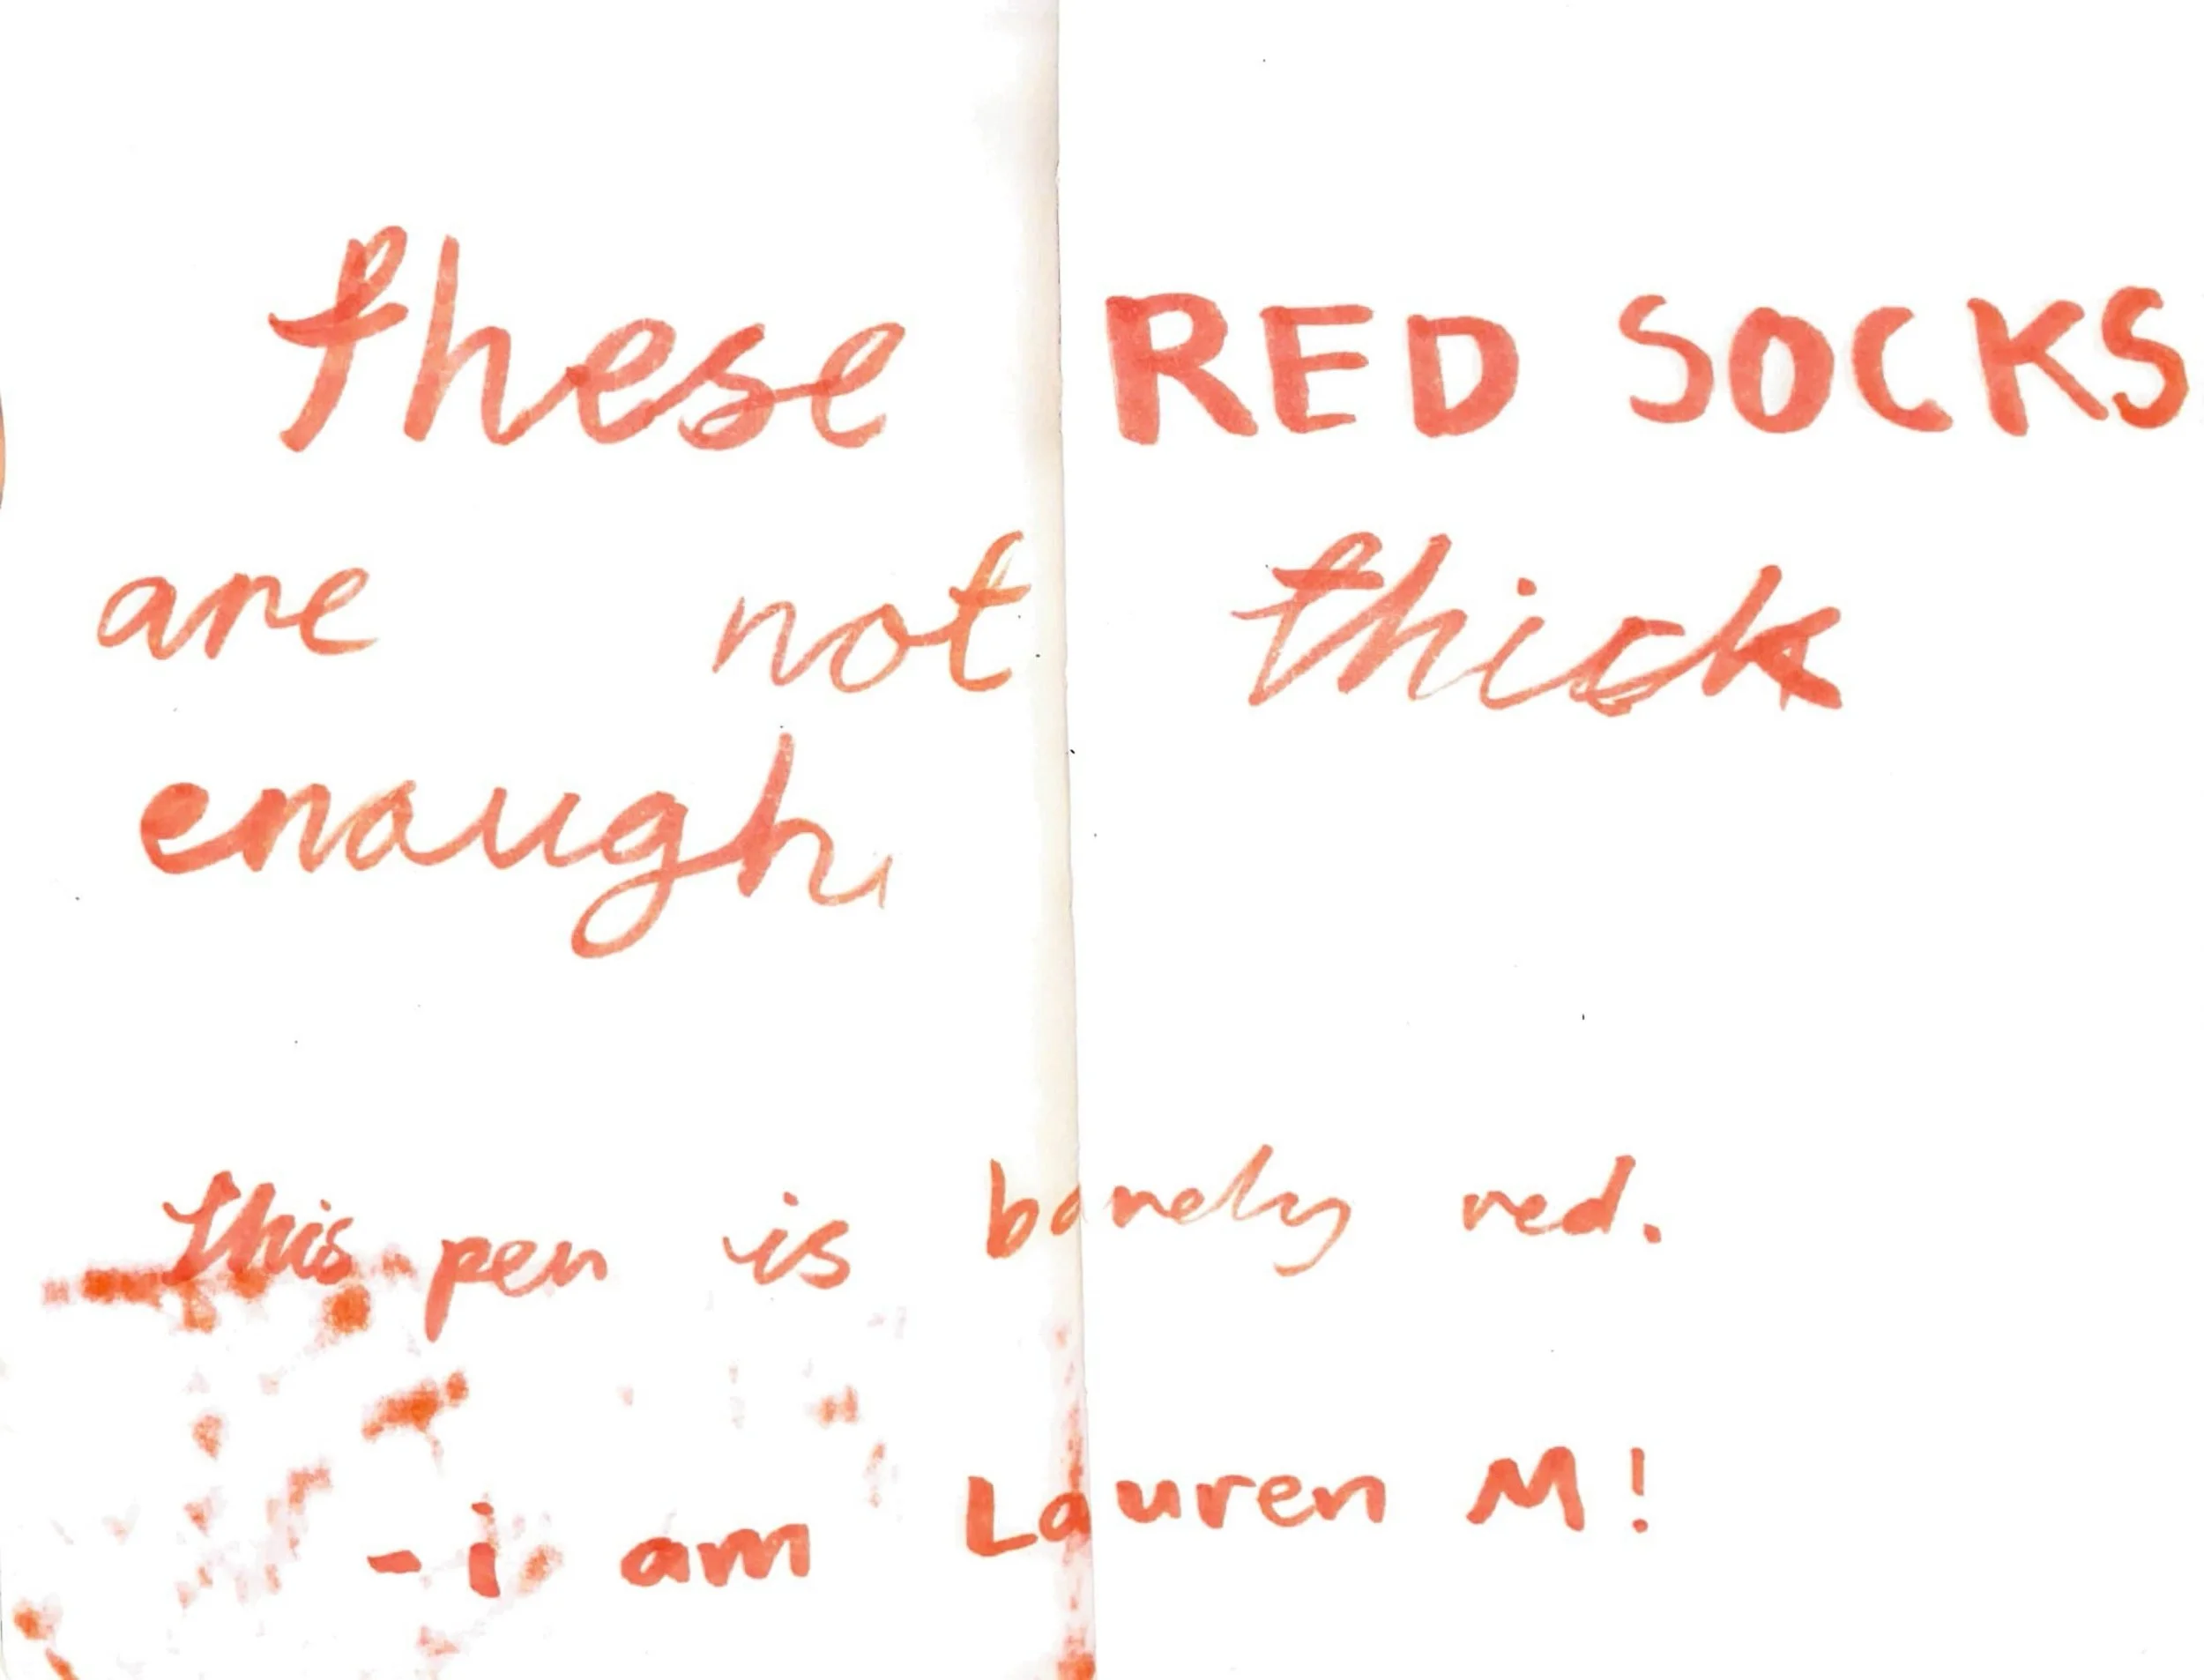 these RED SOCKS
are not thick
enough.
this pen is barely red.
- i am Lauren M!